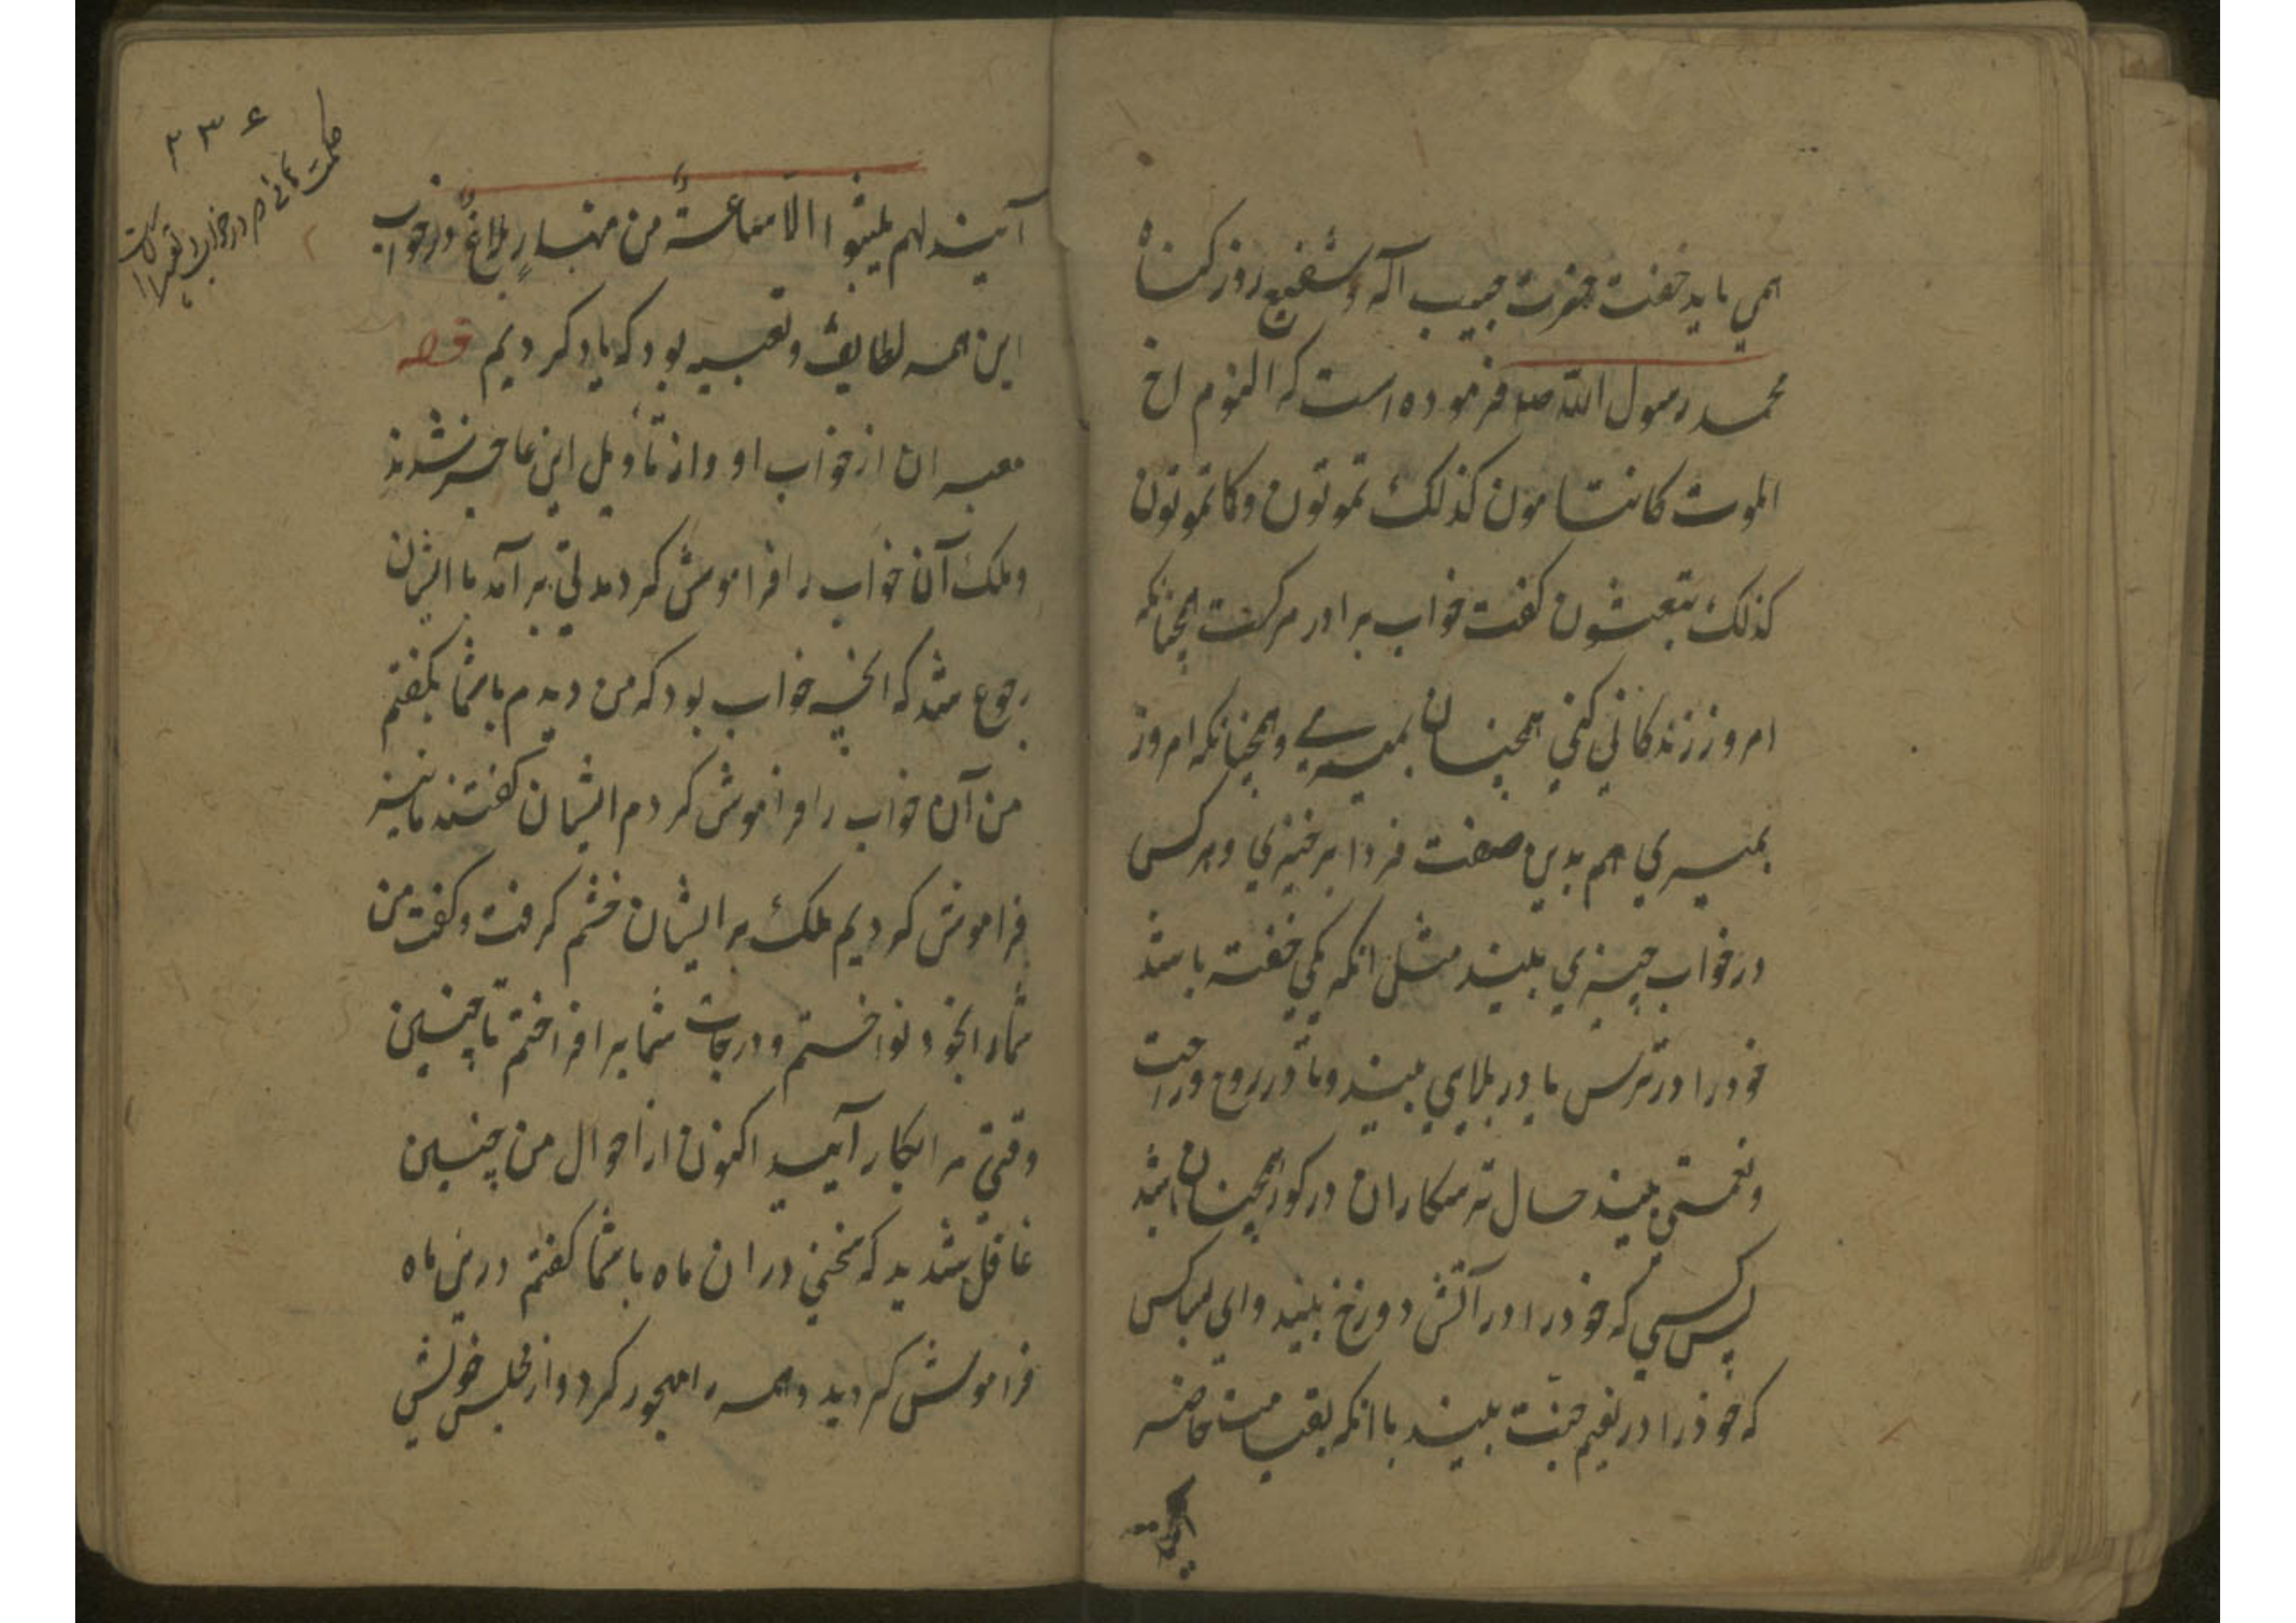 همي بايد خفت حضرت حبيب آله و شفيع روز كناه
محمد رسول الله صلعم فرموده است كه النوم اخ
الموت كما تنامون كذلك تموتون وكما تموتون
كذلك تبعثون كفت خواب برادر مركست همچنانكه
امروز زندكاني كني همچنان بميري و همچنانكه امروز
بميري هم بدين صفت فردا برخيزي و هركس
در خواب چيزي بيند مثل انكه يكي خفته باشد
خود را در ترس يا در بلايي بيند و يا در روح و راحت
و نعمتي بيند حال ترسكاران در كور همچنان باشد
پس كسي كه خود را در آتش دوزخ بيند واي براكس
كه خود را در نعيم جنت بيند با انكه بقيامت حاضر
آيند لهم يلبثوا الا ساعة من نهار بلاغ و در خواب
اين همه لطايف و تعبير بود كه ياد كرديم قصه
معبران از خواب او و از تأويل اين عاجز شدند
و ملك آن خواب را فراموش كرد مدتي برآمد با ايشان
رجوع شد كه انچه خواب بود كه من ديدم با شما بكفتم
من آن خواب را فراموش كردم ايشان كفتند ما نيز
فراموش كرديم ملك بر ايشان خشم كرفت و كفت من
شما را بخود نواختم و درجات شما برافراختم تا چنين
وقتي مرا بكار آييد اكنون از احوال من چنين
غافل شديد كه سخني دران ماه با شما كفتم درين ماه
فراموش كرديد و همه را مهجور كرد و از مجلس خويش
۲۳۶
حكمت در خواب